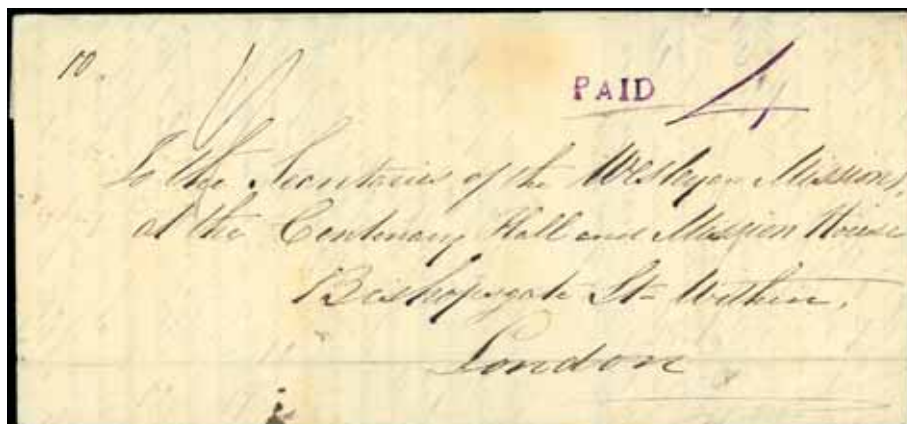 10.
PAID 4
To the Secretaries of the Wesleyan Missions,
at the Centenary Hall and Mission House
Bishopsgate St- Within,
London